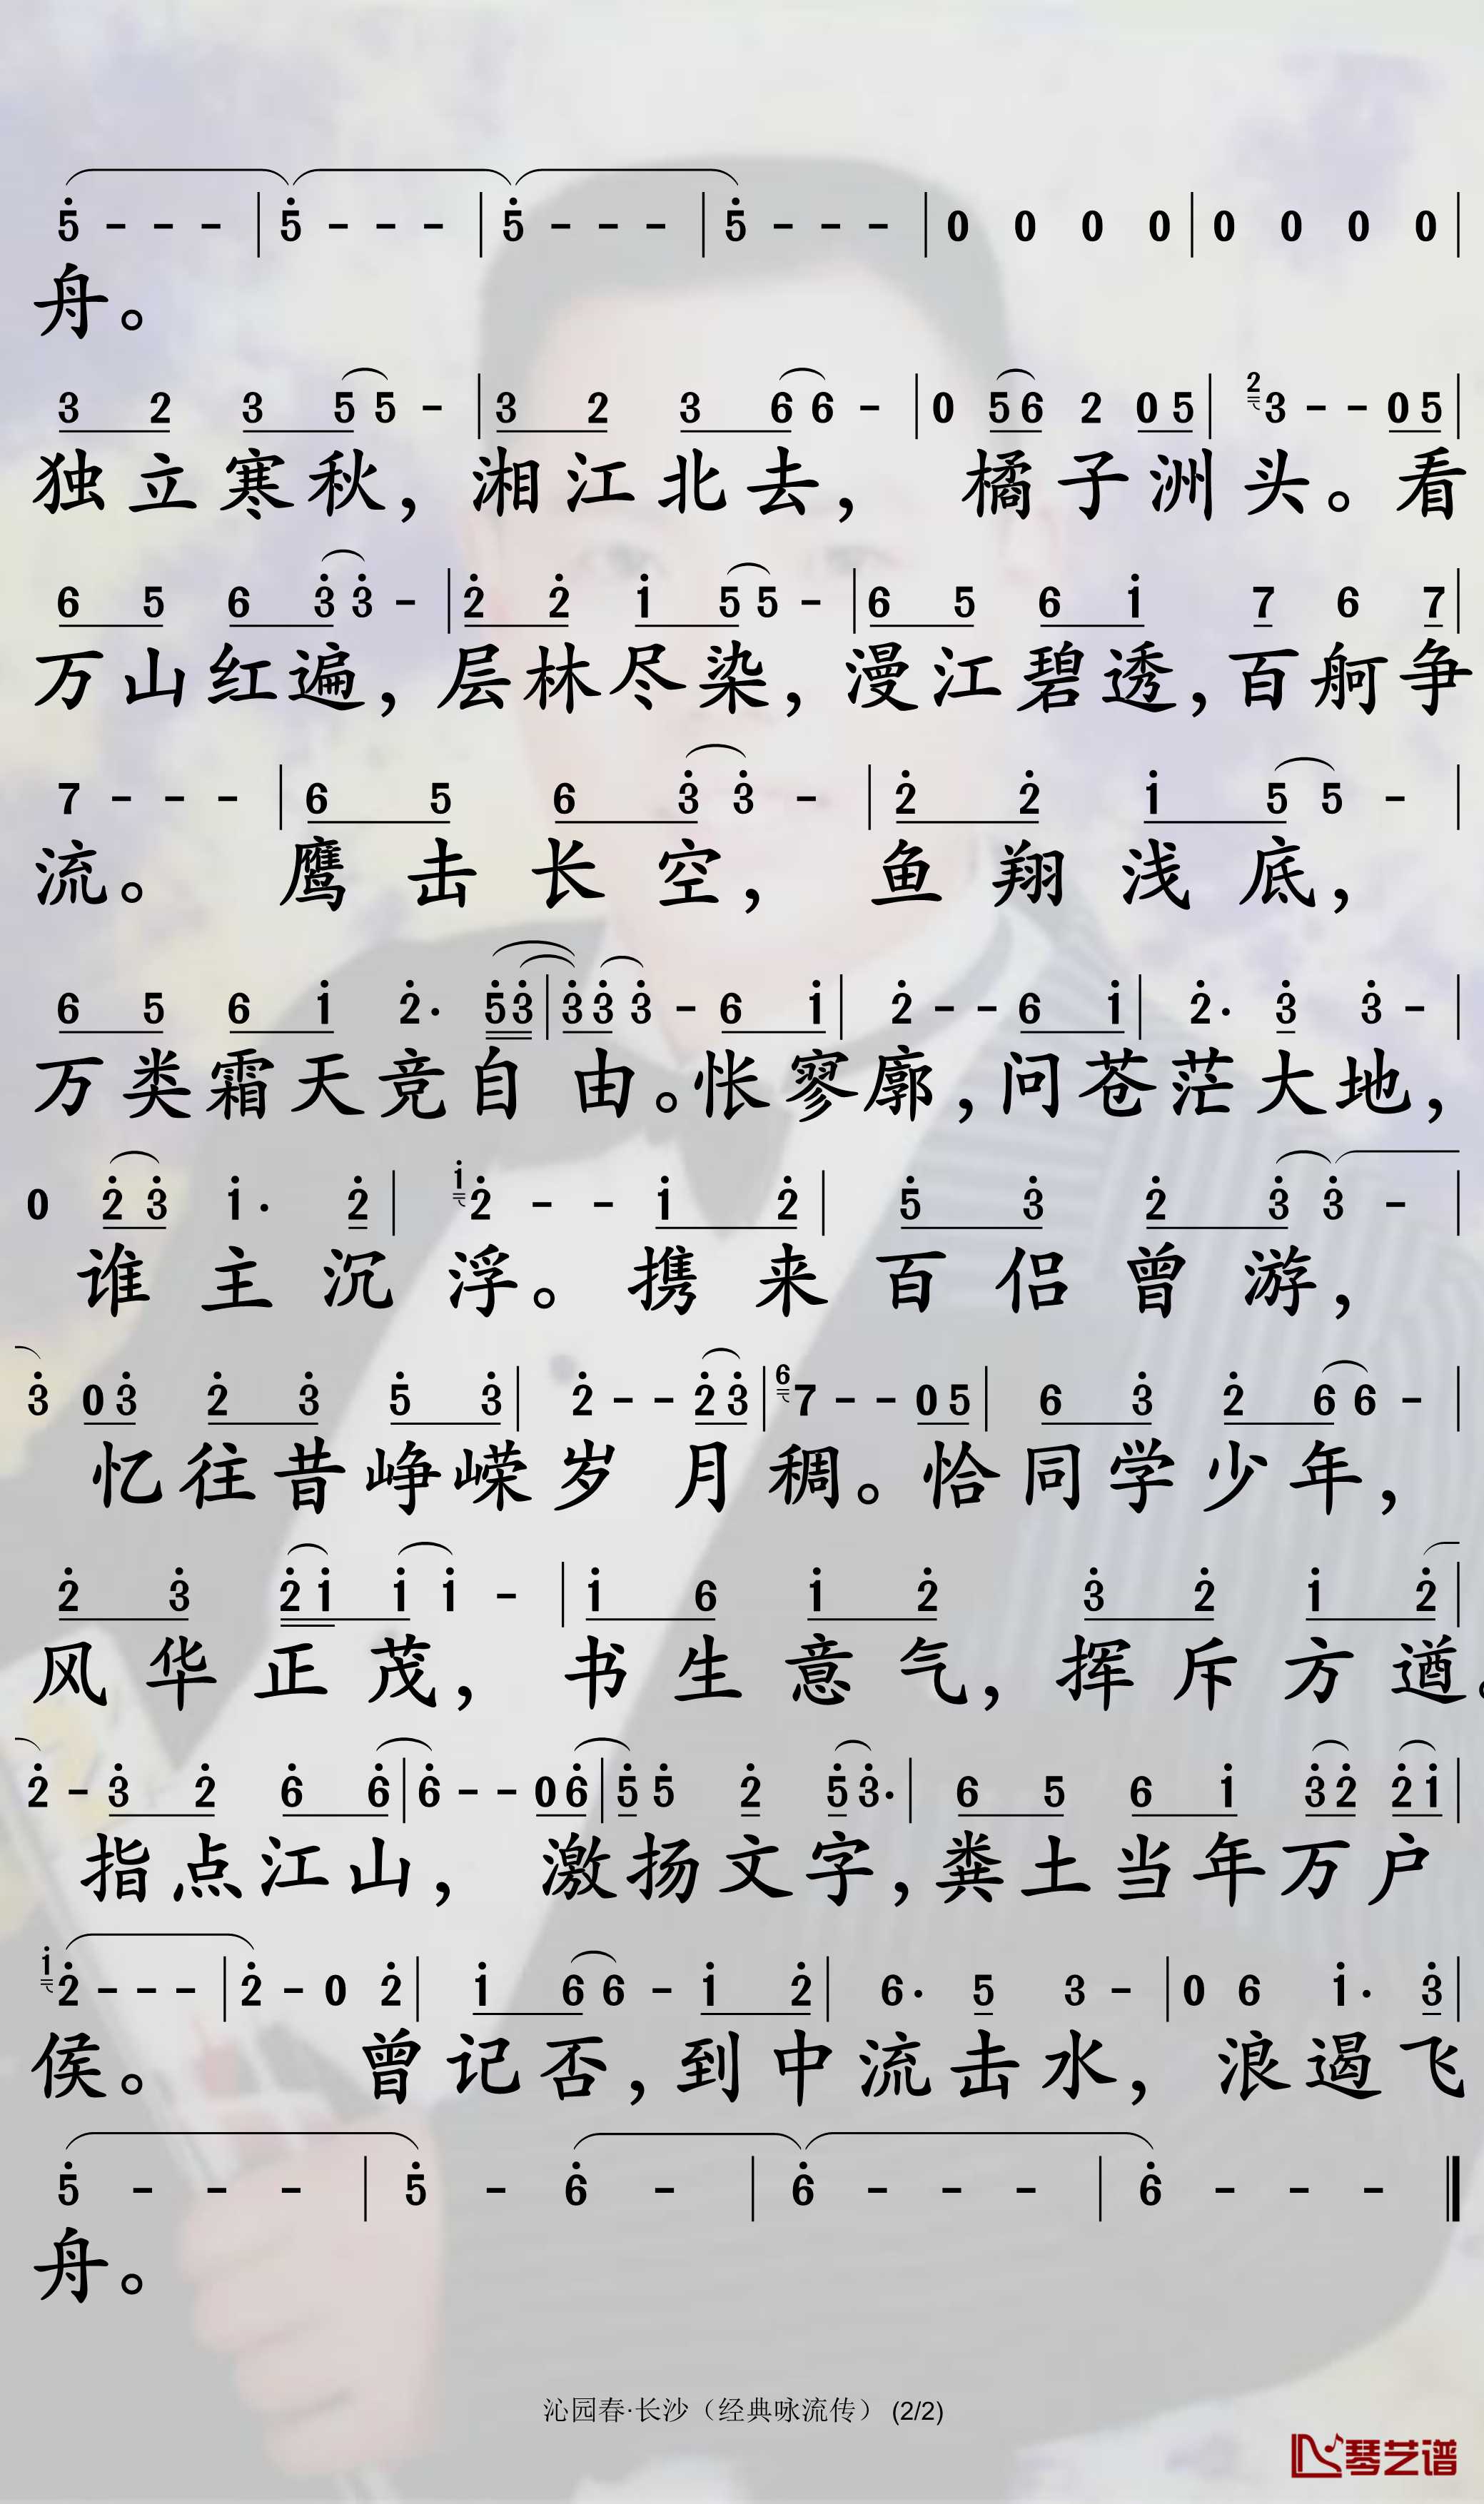 5̇ - - - | 5̇ - - - | 5̇ - - - | 5̇ - - - | 0 0 0 0 | 0 0 0 0 |
舟。
3 2 3 5 5 - | 3 2 3 6 6 - | 0 5 6 2 0 5 | 2 3 - - 0 5 |
独立寒秋，湘江北去，橘子洲头。看
6 5 6 3̇ 3̇ - | 2̇ 2̇ 1̇ 5 5 - | 6 5 6 1̇ 7 6 7 |
万山红遍，层林尽染，漫江碧透，百舸争
7 - - - | 6 5 6 3̇ 3̇ - | 2̇ 2̇ 1̇ 5 5 - |
流。鹰击长空，鱼翔浅底，
6 5 6 1̇ 2̇· 5̇ 3̇ | 3̇ 3̇ 3̇ - 6 1̇ | 2̇ - - 6 1̇ | 2̇· 3̇ 3̇ - |
万类霜天竞自由。怅寥廓，问苍茫大地，
0 2̇ 3̇ 1̇· 2̇ | 1̇ 2̇ - - 1̇ 2̇ | 5̇ 3̇ 2̇ 3̇ 3̇ - |
谁主沉浮。携来百侣曾游，
3̇ 0 3̇ 2̇ 3̇ 5̇ 3̇ | 2̇ - - 2̇ 3̇ | 6 7 - - 0 5 | 6 3̇ 2̇ 6 6 - |
忆往昔峥嵘岁月稠。恰同学少年，
2̇ 3̇ 2̇ 1̇ 1̇ 1̇ - | 1̇ 6 1̇ 2̇ 3̇ 2̇ 1̇ 2̇ |
风华正茂，书生意气，挥斥方遒。
2̇ - 3̇ 2̇ 6̇ 6̇ | 6̇ - - 0 6̇ | 5̇ 5̇ 2̇ 5̇ 3̇· | 6 5 6 1̇ 3̇ 2̇ 2̇ 1̇ |
指点江山，激扬文字，粪土当年万户
1̇ 2̇ - - - | 2̇ - 0 2̇ | 1̇ 6 6 - 1̇ 2̇ | 6· 5 3 - | 0 6 1̇· 3̇ |
侯。曾记否，到中流击水，浪遏飞
5̇ - - - | 5̇ - 6̇ - | 6̇ - - - | 6̇ - - - ‖
舟。
沁园春·长沙（经典咏流传） (2/2)
琴艺谱